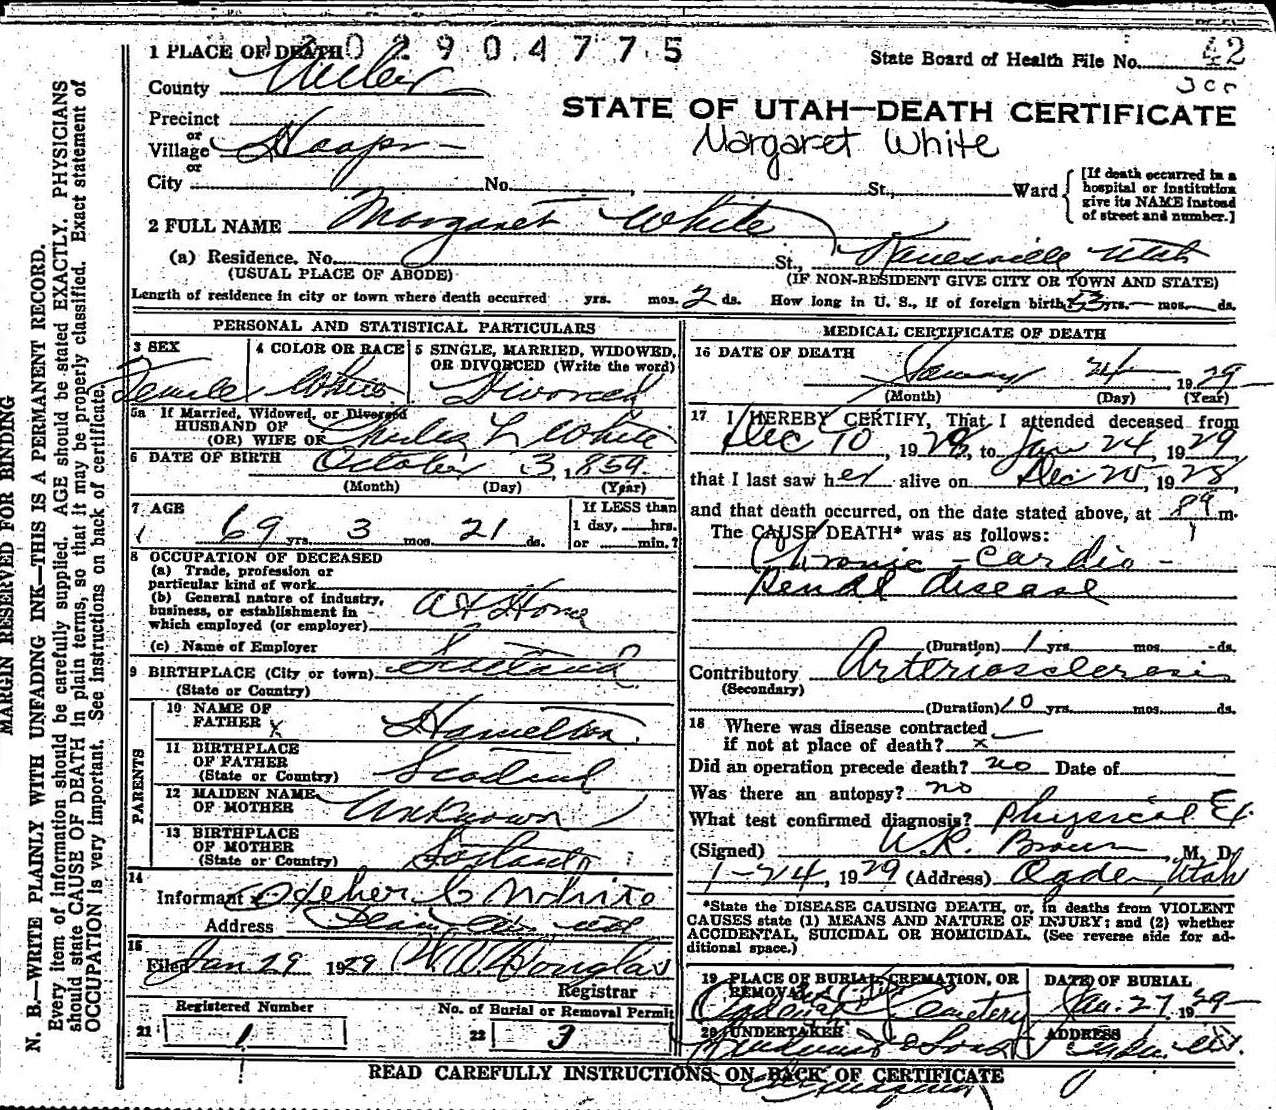 2904775
1 PLACE OF DEATH
State Board of Health File No. 42
County Weber
STATE OF UTAH—DEATH CERTIFICATE
Precinct
or
Village Hooper
Margaret White
or
City No. St., Ward
[If death occurred in a
hospital or institution
give its NAME instead
of street and number.]
2 FULL NAME Margaret White
(a) Residence. No. St., Kanesville Utah
(USUAL PLACE OF ABODE) (IF NON-RESIDENT GIVE CITY OR TOWN AND STATE)
Length of residence in city or town where death occurred yrs. mos. 2 ds. How long in U. S., if of foreign birth? 53 yrs. mos. ds.
PERSONAL AND STATISTICAL PARTICULARS
3 SEX
Female
4 COLOR OR RACE
White
5 SINGLE, MARRIED, WIDOWED,
OR DIVORCED (Write the word)
Divorced
5a If Married, Widowed, or Divorced
HUSBAND OF
(OR) WIFE OF Charles L White
6 DATE OF BIRTH October 3, 1859.
(Month) (Day) (Year)
7 AGE
69 yrs. 3 mos. 21 ds.
If LESS than
1 day, hrs.
or min.?
8 OCCUPATION OF DECEASED
(a) Trade, profession or
particular kind of work
(b) General nature of industry,
business, or establishment in
which employed (or employer) At Home
(c) Name of Employer
9 BIRTHPLACE (City or town) Scotland
(State or Country)
PARENTS
10 NAME OF
FATHER x Hamilton
11 BIRTHPLACE
OF FATHER
(State or Country) Scotland
12 MAIDEN NAME
OF MOTHER Unknown
13 BIRTHPLACE
OF MOTHER
(State or Country) Scotland
14
Informant White
Address
15
Filed Jan 29 1929 W W Douglas
Registrar
Registered Number
21 1
No. of Burial or Removal Permit
22 3
MEDICAL CERTIFICATE OF DEATH
16 DATE OF DEATH
January 24 1929
(Month) (Day) (Year)
17 I HEREBY CERTIFY, That I attended deceased from
Dec 10, 1928, to Jan 24, 1929
that I last saw her alive on Dec 25, 1928,
and that death occurred, on the date stated above, at m.
The CAUSE DEATH* was as follows:
Chronic - cardio -
Renal disease
(Duration) 1 yrs. mos. ds.
Contributory Arteriosclerosis
(Secondary)
(Duration) 10 yrs. mos. ds.
18 Where was disease contracted
if not at place of death? x
Did an operation precede death? no Date of
Was there an autopsy? no
What test confirmed diagnosis? Physical Ex.
(Signed) W.R. Brown, M. D.
1-24, 1929 (Address) Ogden, Utah
*State the DISEASE CAUSING DEATH, or, in deaths from VIOLENT
CAUSES state (1) MEANS AND NATURE OF INJURY; and (2) whether
ACCIDENTAL, SUICIDAL OR HOMICIDAL. (See reverse side for ad-
ditional space.)
19 PLACE OF BURIAL, CREMATION, OR
REMOVAL
Ogden City Cemetery
DATE OF BURIAL
Jan. 27, 1929
20 UNDERTAKER
& Sons
ADDRESS
Ogden, Ut.
READ CAREFULLY INSTRUCTIONS ON BACK OF CERTIFICATE
MARGIN RESERVED FOR BINDING
N. B.—WRITE PLAINLY WITH UNFADING INK—THIS IS A PERMANENT RECORD.
Every item of information should be carefully supplied. AGE should be stated EXACTLY. PHYSICIANS
should state CAUSE OF DEATH in plain terms, so that it may be properly classified. Exact statement of
OCCUPATION is very important. See instructions on back of certificate.